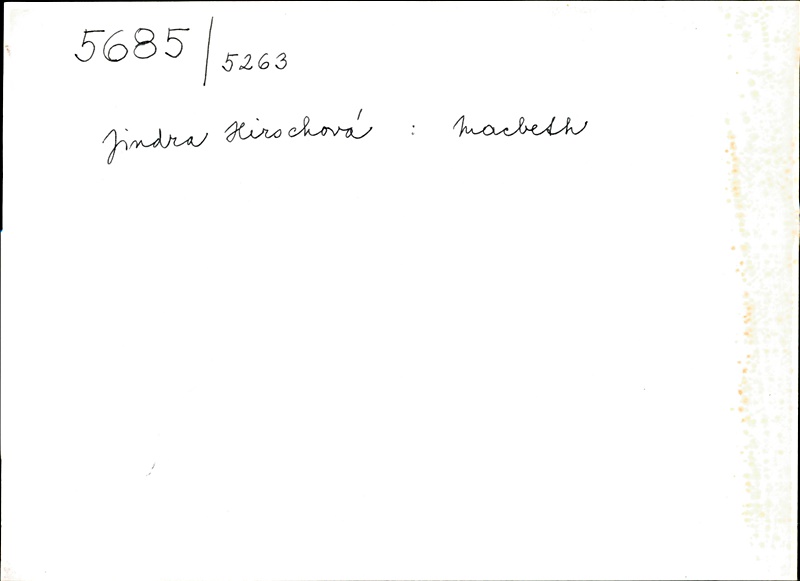 5685/5263
Jindra Hirschová : Macbeth